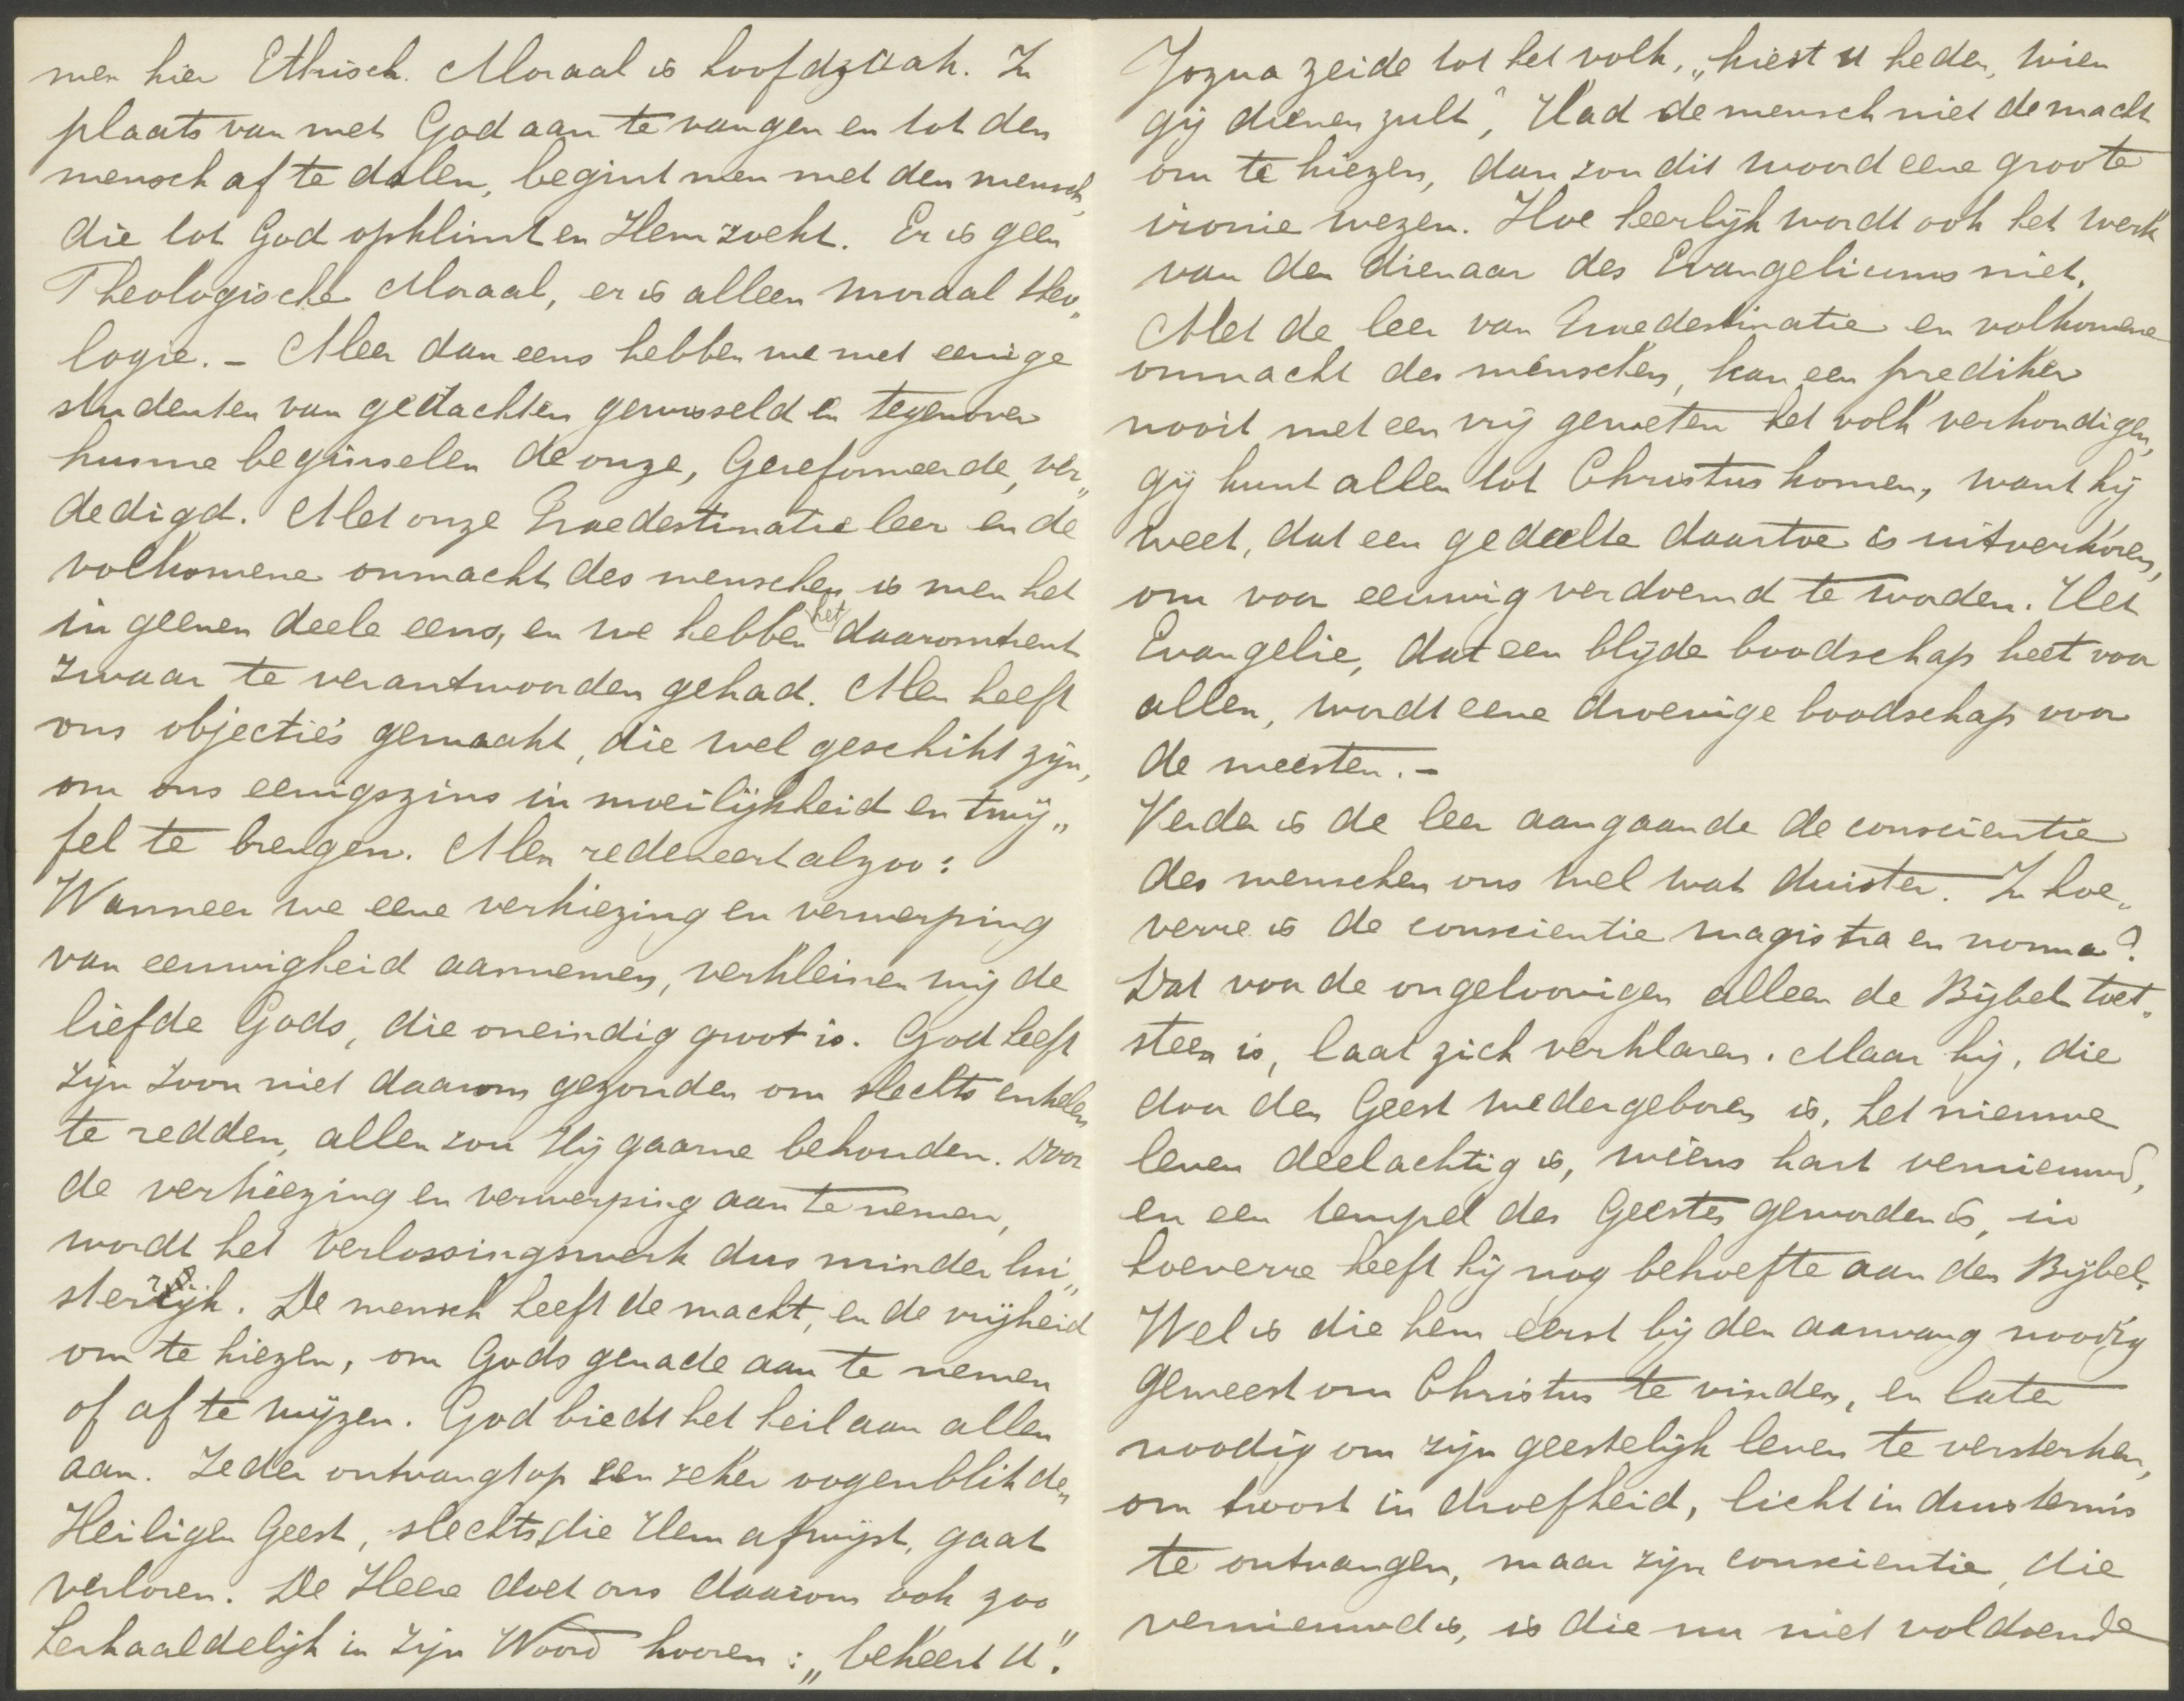 men hier Ethisch. Moraal is hoofdzaak. In
plaats van met God aan te vangen en tot den
mensch af te dalen, begint men met den mensch,
die tot God opklimt en Hem zoekt. Er is geen
Theologische Moraal, er is alleen moraal theo„
logie. – Meer dan eens hebben we met eenige
studenten van gedachten gewisseld en tegenover
hunne beginselen de onze, Gereformeerde, ver„
dedigd. Met onze Praedestinatie leer en de
volkomene onmacht des menschen is men het
in geenen deele eens, en we hebben het daaromtrent
zwaar te verantwoorden gehad. Men heeft
ons objectie's gemaakt, die wel geschikt zijn,
om ons eenigszins in moeilijkheid en twij„
fel te brengen. Men redeneert alzoo:
Wanneer we eene verkiezing en verwerping
van eeuwigheid aannemen, verkleinen wij de
liefde Gods, die oneindig groot is. God heeft
zijn Zoon niet daarom gezonden om slechts enkelen
te redden, allen zou Hij gaarne behouden. Door
de verkiezing en verwerping aan te nemen,
wordt het verlossingswerk dus minder lui„
sterrijk. De mensch heeft de macht, en de vrijheid
om te kiezen, om Gods genade aan te nemen
of af te wijzen. God biedt het heil aan allen
aan. Ieder ontvangt op een zeker oogenblik den
Heiligen Geest, slechts die Hem afwijst, gaat
verloren. De Heere doet ons daarom ook zoo
herhaaldelijk in Zijn Woord hooren: „bekeert U".
Jozua zeide tot het volk, „kiest U heden, wien
gij dienen zult", Had de mensch niet de macht
om te kiezen, dan zou dit woord eene groote
ironie wezen. Hoe heerlijk wordt ook het werk
van den dienaar des Evangeliums niet.
Met de leer van Praedestinatie en volkomene
onmacht des menschen, kan een prediker
nooit met een vrij geweten het volk verkondigen,
gij kunt allen tot Christus komen, want hij
weet, dat een gedeelte daartoe is uitverkoren,
om voor eeuwig verdoemd te worden. Het
Evangelie, dat een blijde boodschap heet voor
allen, wordt eene droevige boodschap voor
de meesten. –
Verder is de leer aangaande de conscientie
des menschen ons wel wat duister. In hoe„
verre is de conscientie magistra en norma?
Dat voor de ongeloovigen alleen de Bijbel toet„
steen is, laat zich verklaren. Maar hij, die
door den Geest wedergeboren is, het nieuwe
leven deelachtig is, wiens hart vernieuwd,
en een tempel des Geestes geworden is, in
hoeverre heeft hij nog behoefte aan den Bijbel.
Wel is die hem eerst bij den aanvang noodig
geweest om Christus te vinden, en later
noodig om zijn geestelijk leven te versterken,
om troost in droefheid, licht in duisternis
te ontvangen, maar zijn conscientie, die
vernieuwd is, is die nu niet voldoende